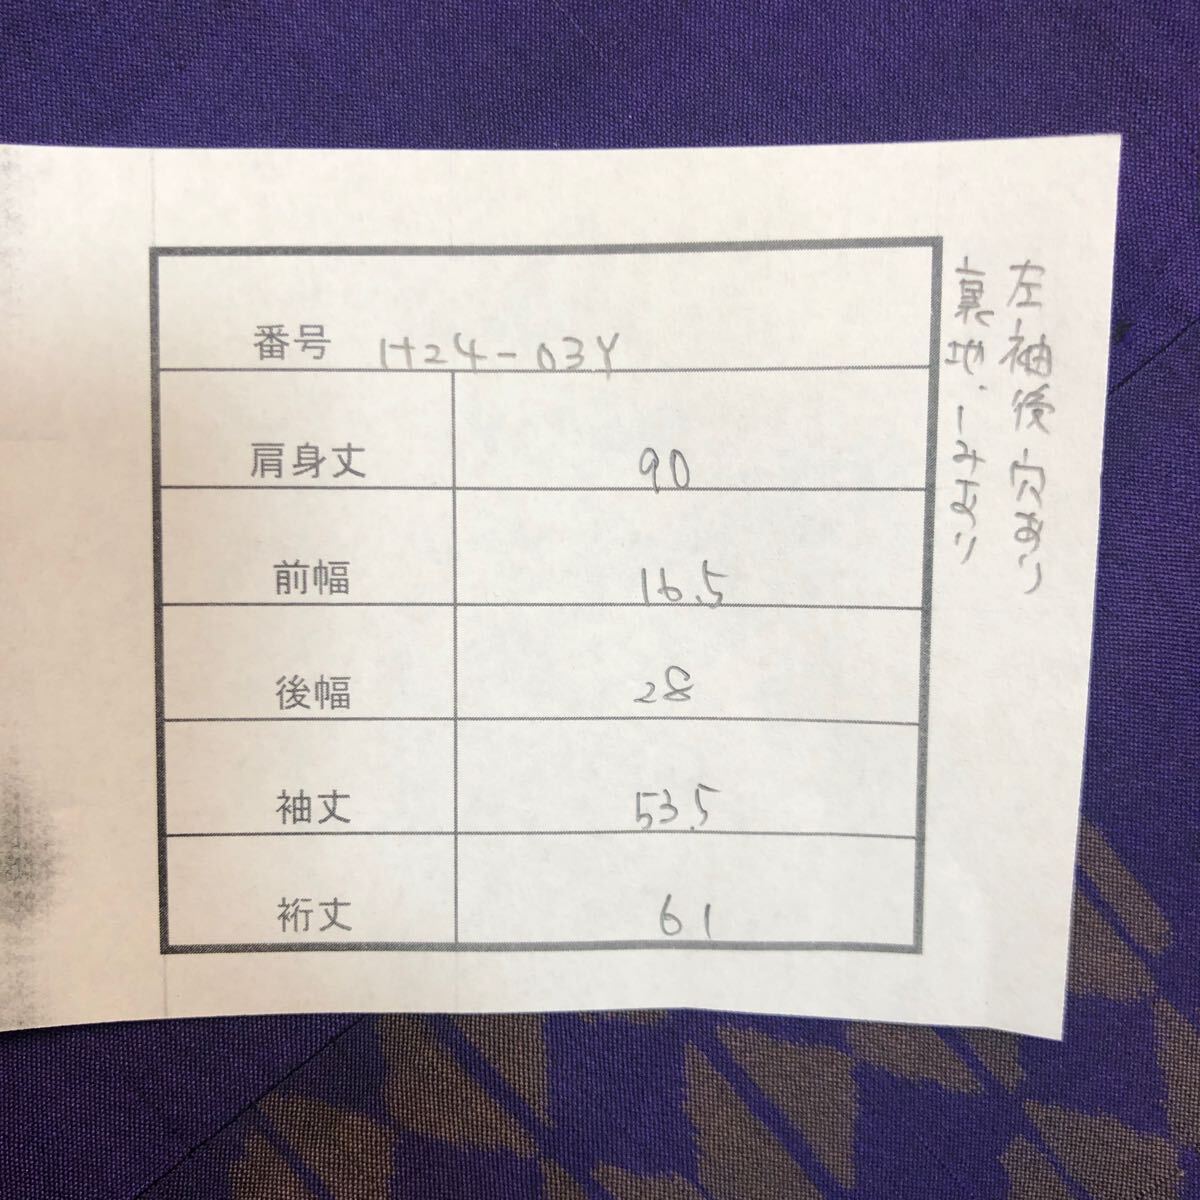 番号 H24-03Y
肩身丈 90
前幅 16.5
後幅 28
袖丈 53.5
裄丈 61
左袖後穴あり
裏地、しみあり